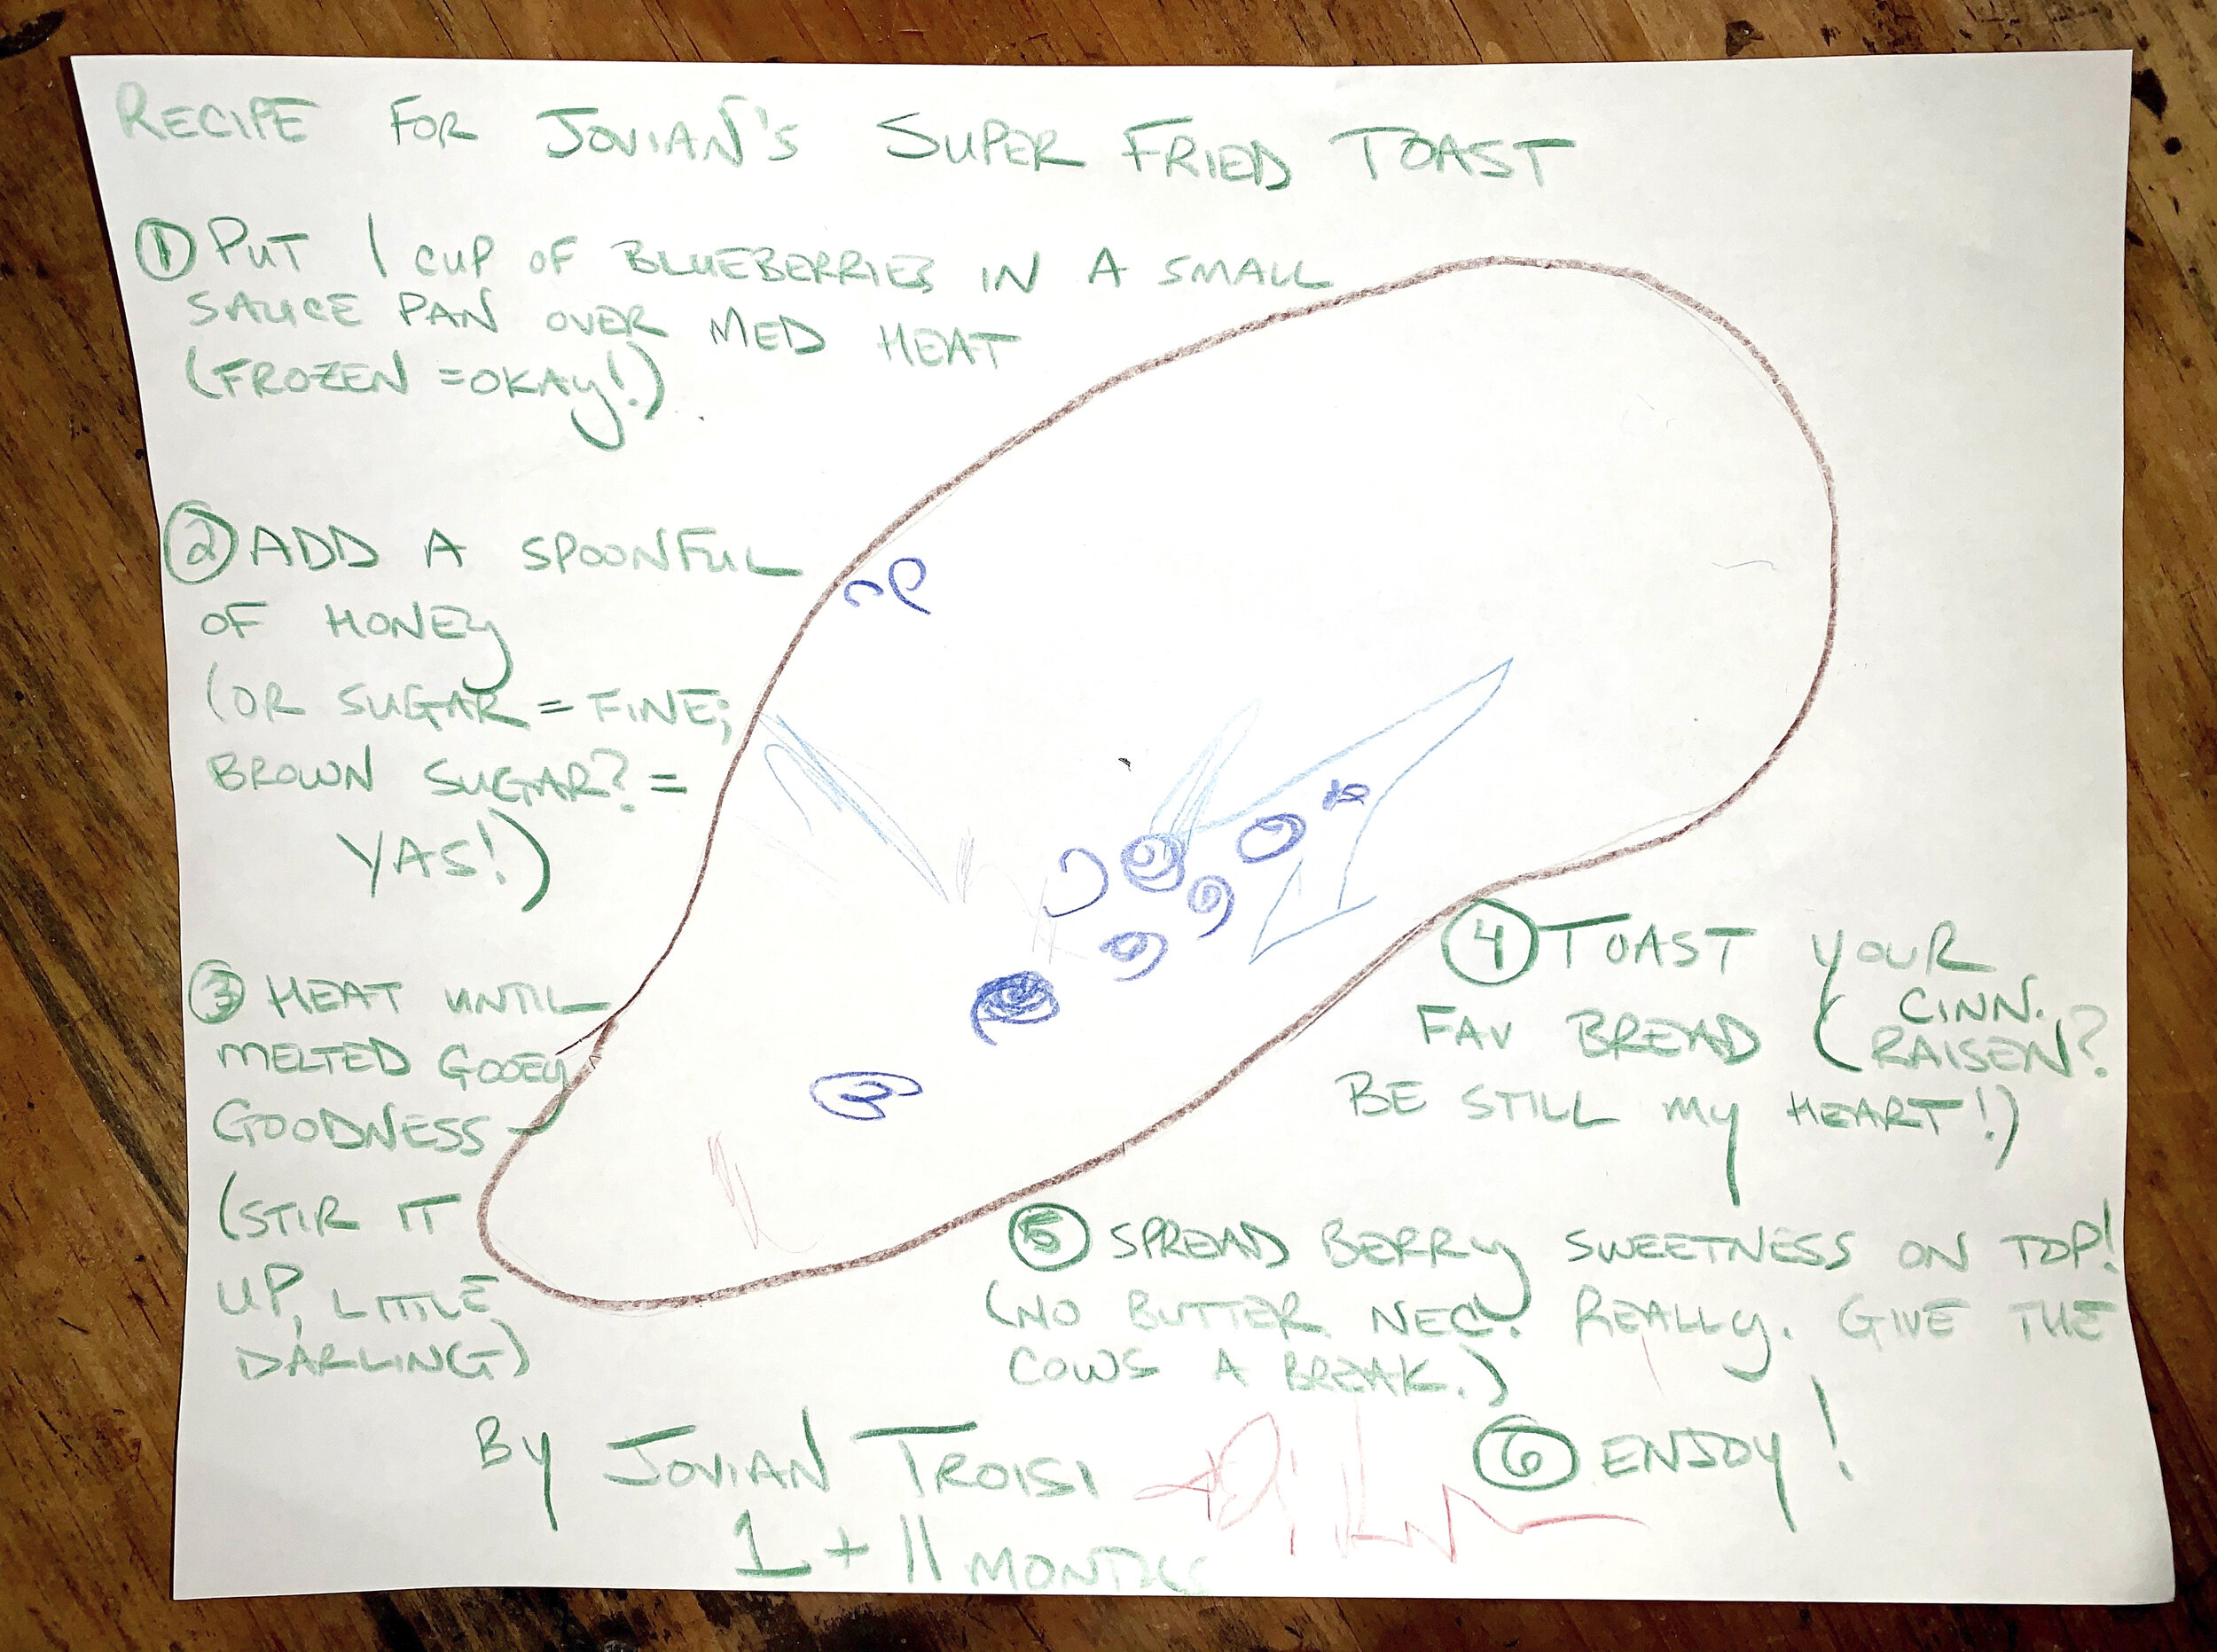 RECIPE FOR JOVIAN'S SUPER FRIED TOAST
① PUT 1 CUP OF BLUEBERRIES IN A SMALL
SAUCE PAN OVER MED HEAT
(FROZEN = OKAY!)
② ADD A SPOONFUL
OF HONEY
(OR SUGAR = FINE;
BROWN SUGAR? =
YAS!)
③ HEAT UNTIL
MELTED GOOEY
GOODNESS
(STIR IT
UP, LITTLE
DARLING)
④ TOAST YOUR
FAV BREAD (CINN.
RAISEN?
BE STILL MY HEART!)
⑤ SPREAD BERRY SWEETNESS ON TOP!
(NO BUTTER NEC. REALLY. GIVE THE
COWS A BREAK.)
⑥ ENJOY!
BY JOVIAN TROISI
1 + 11 MONTHS